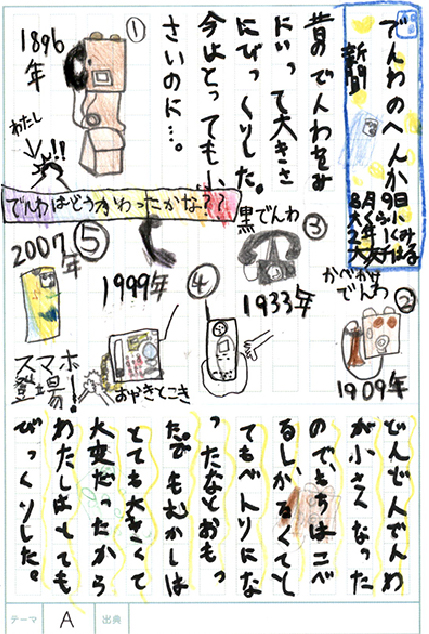 でんわのへんか
新聞
8月9日
2年1くみ
昔のでんわをみ
にいって大きさ
にびっくりした。
今はとっても小
さいのに…。
①
1896
年
わたし
!!
でんわはどうかわったかな??
②
かべかけ
でんわ
1909年
③
黒でんわ
1933年
④
1999年
おやきとこき
⑤
2007年
スマホ
登場!
どんどんでんわ
が小さくなった
のでもちはこべ
るしかるくてと
てもべんりにな
ったなとおもっ
た。でもむかしは
とても大きくて
大変だったから
わたしはとても
びっくりした。
テーマ
A
出典